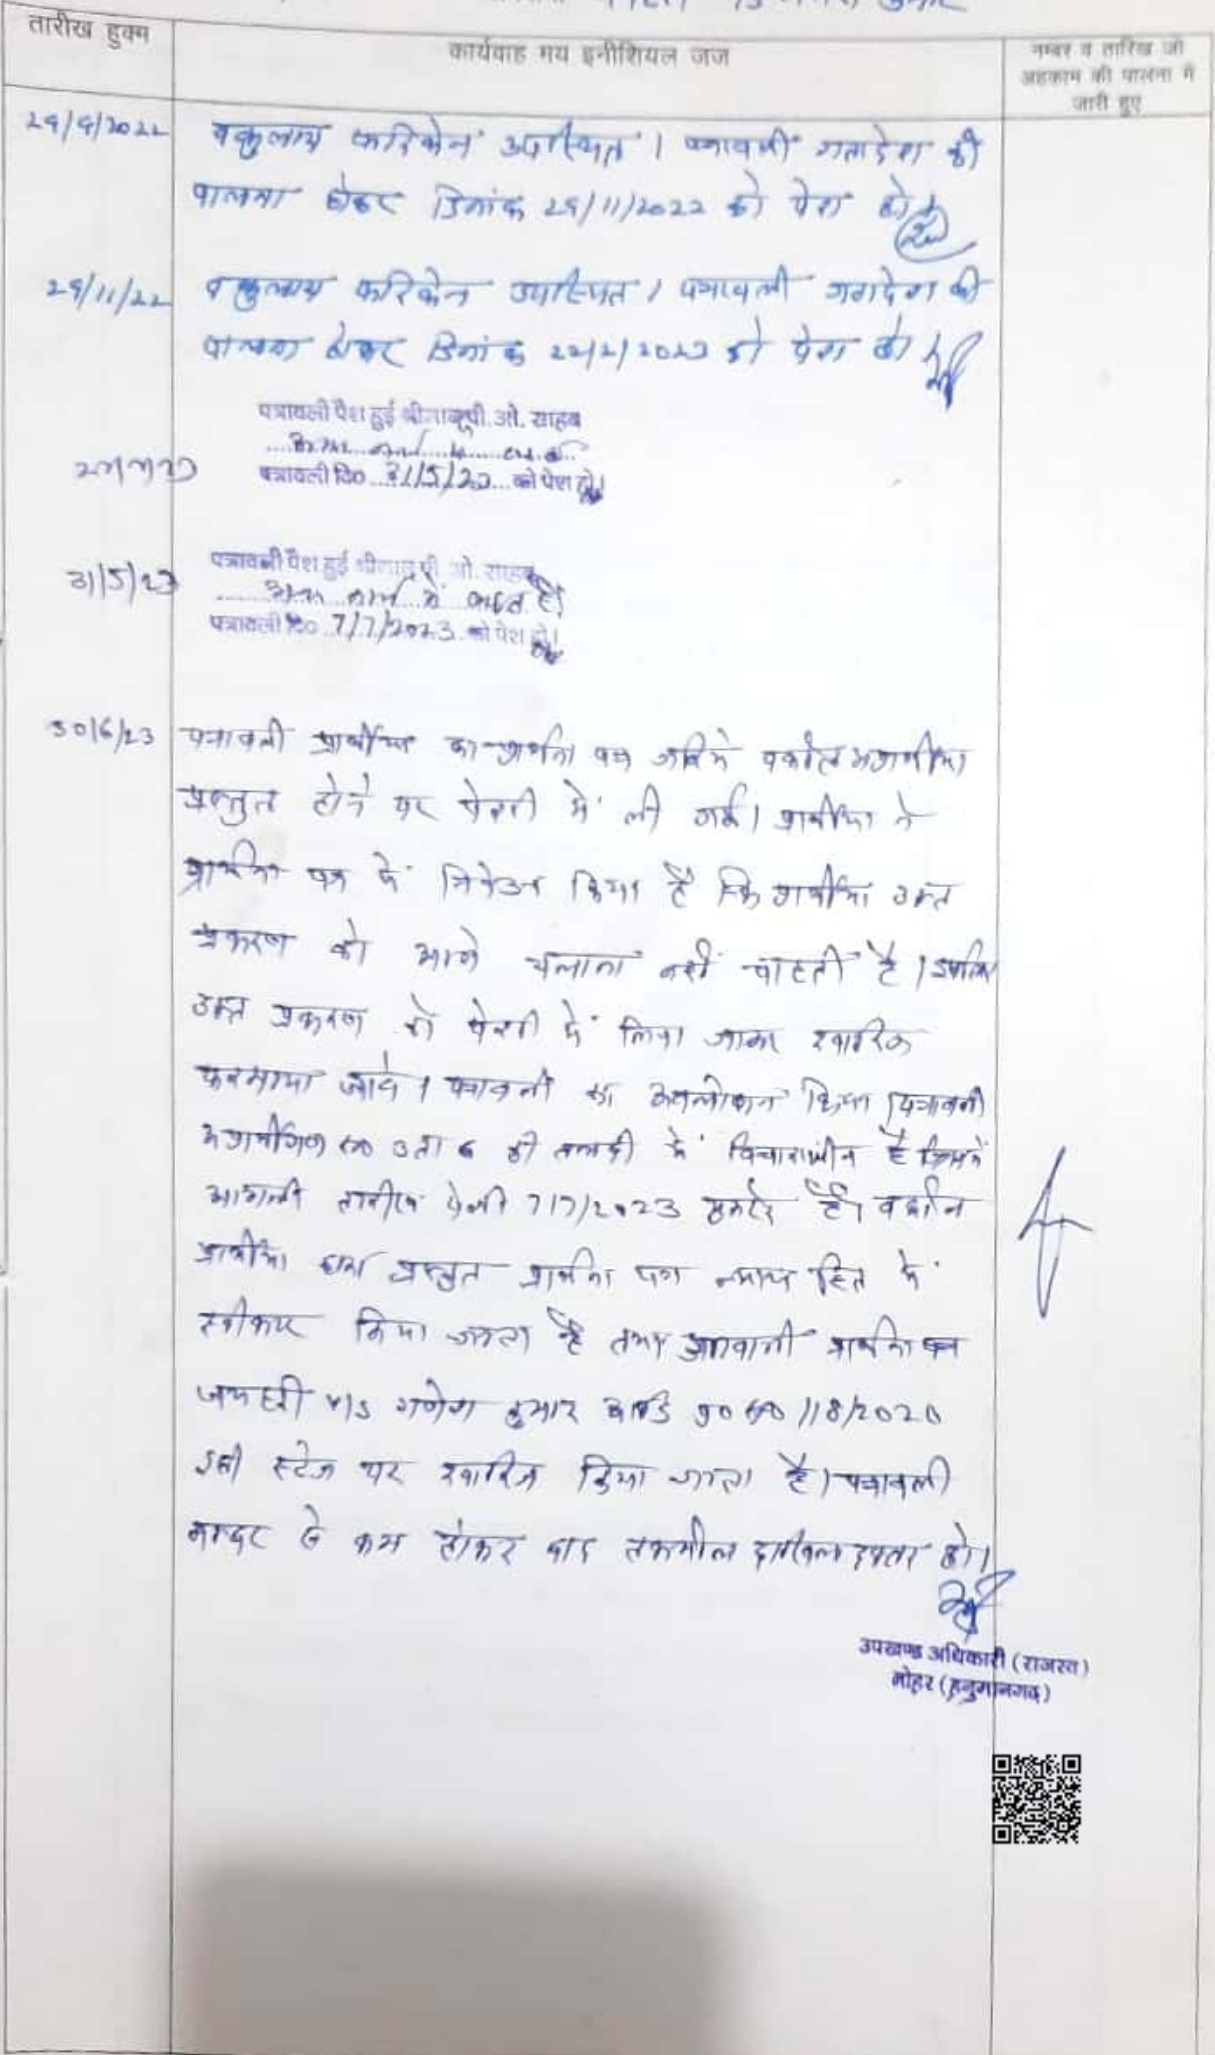 तारीख हुक्म
कार्यवाह मय इनीशियल जज
नम्बर व तारिख जो
अहकाम की पालना में
जारी हुए
29/9/2022 वकुलाय फरिकेन उपस्थित। पत्रावली गतादेश की
पालना होकर दिनांक 29/11/2022 को पेश हो।
29/11/22 वकुलाय फरिकेन उपस्थित। पत्रावली गतादेश की
पालना होकर दिनांक को पेश हो।
पत्रावली पेश हुई श्रीमान् पी. ओ. साहब
पत्रावली दि० 31/5/23 को पेश हो।
31/5/23
पत्रावली पेश हुई श्रीमान् पी. ओ. साहब
अन्य कार्य में व्यस्त है।
पत्रावली दि० 7/7/2023 को पेश हो।
30/6/23 पत्रावली प्रार्थीया का प्रार्थना पत्र जरिये वकील
प्रस्तुत होने पर पेशी में ली गई। प्रार्थीया ने
प्रार्थना पत्र में निवेदन किया है कि प्रार्थीया उक्त
प्रकरण को आगे चलाना नहीं चाहती है। इसलिए
उक्त प्रकरण को पेशी में लिया जाकर खारिज
फरमाया जावे। पत्रावली का अवलोकन किया। पत्रावली
3 ता 6 की तलबी में विचाराधीन है जिसमें
आगामी तारीख पेशी 7/7/2023 है। वकील
प्रार्थीया द्वारा प्रस्तुत प्रार्थना पत्र न्याय हित में
स्वीकार किया जाता है तथा प्रार्थना पत्र
V/S गणेश कुमार आदि प्र० सं० 118/2020
इसी स्टेज पर खारिज किया जाता है। पत्रावली
नम्बर से कम होकर बाद तकमील दाखिल दफ्तर हो।
उपखण्ड अधिकारी (राजस्व)
नोहर (हनुमानगढ़)